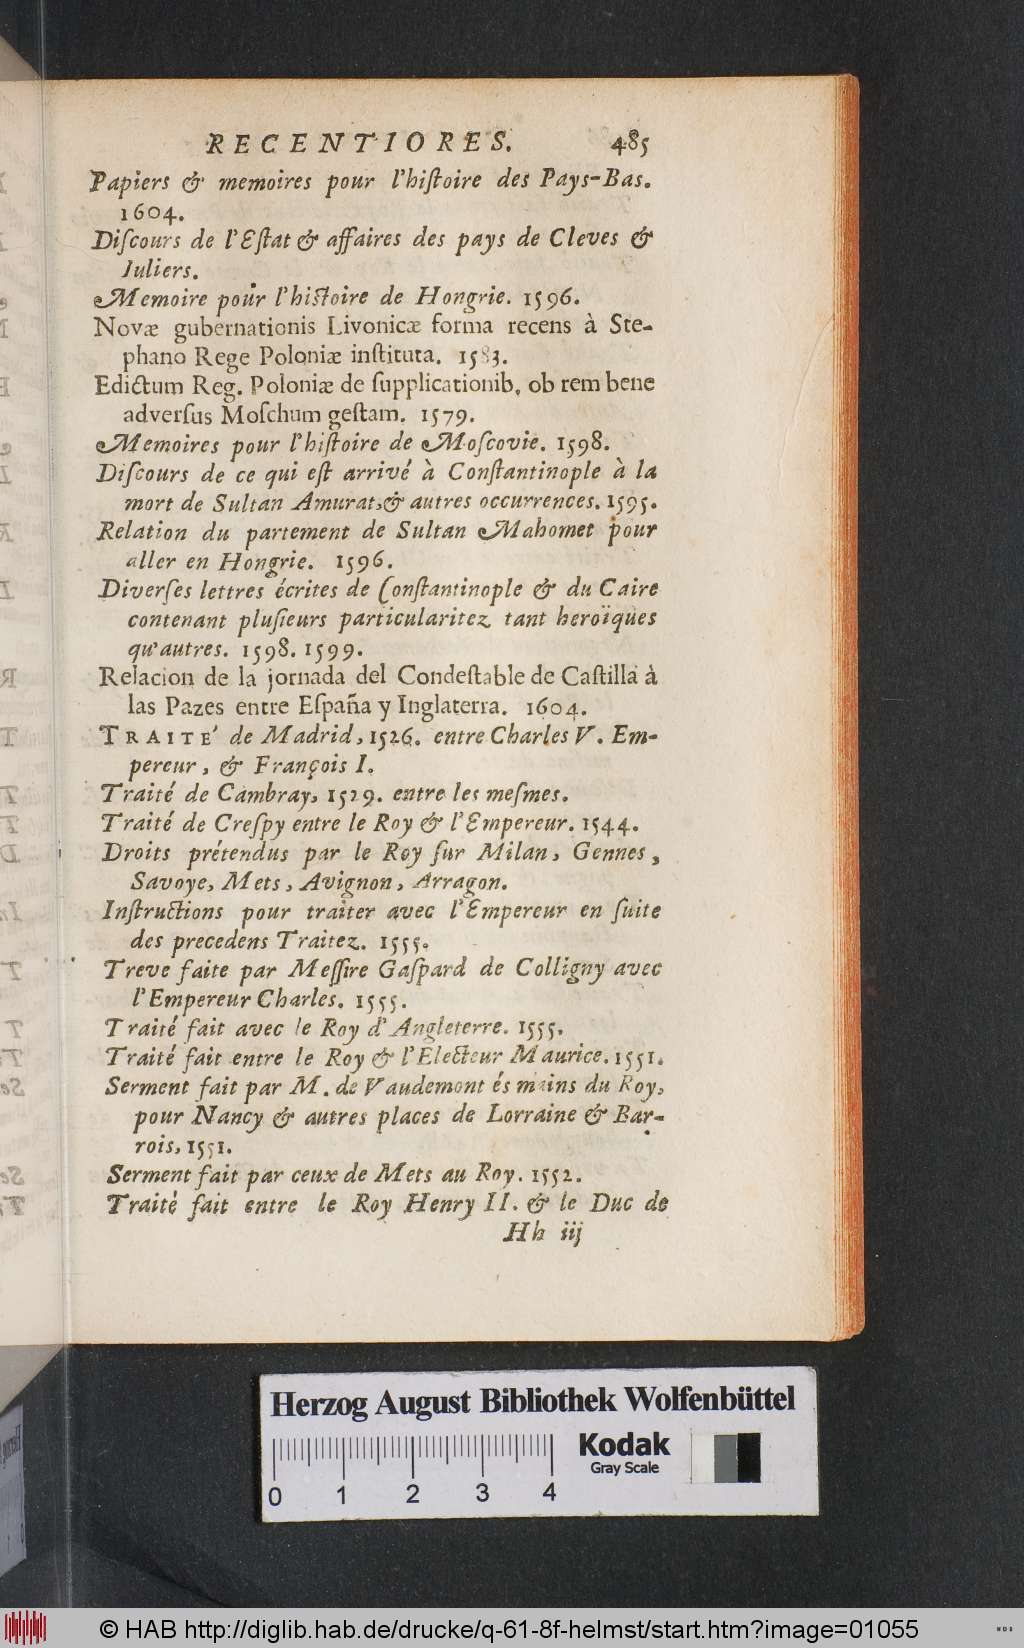 RECENTIORES. 485
Papiers & memoires pour l'hiſtoire des Pays-Bas.
1604.
Diſcours de l'Eſtat & affaires des pays de Cleves &
Juliers.
Memoire pour l'hiſtoire de Hongrie. 1596.
Novæ gubernationis Livonicæ forma recens à Ste-
phano Rege Poloniæ inſtituta. 1583.
Edictum Reg. Poloniæ de ſupplicationib. ob rem bene
adverſus Moſchum geſtam. 1579.
Memoires pour l'hiſtoire de Moſcovie. 1598.
Diſcours de ce qui eſt arrivé à Conſtantinople à la
mort de Sultan Amurat, & autres occurrences. 1595.
Relation du partement de Sultan Mahomet pour
aller en Hongrie. 1596.
Diverſes lettres écrites de Conſtantinople & du Caire
contenant pluſieurs particularitez tant heroïques
qu'autres. 1598. 1599.
Relacion de la jornada del Condeſtable de Caſtilla à
las Pazes entre Eſpaña y Inglaterra. 1604.
TRAITE' de Madrid, 1526. entre Charles V. Em-
pereur, & François I.
Traité de Cambray, 1529. entre les meſmes.
Traité de Creſpy entre le Roy & l'Empereur. 1544.
Droits prétendus par le Roy ſur Milan, Gennes,
Savoye, Mets, Avignon, Arragon.
Inſtructions pour traiter avec l'Empereur en ſuite
des precedens Traitez. 1555.
Treve faite par Meſſire Gaſpard de Colligny avec
l'Empereur Charles. 1555.
Traité fait avec le Roy d'Angleterre. 1555.
Traité fait entre le Roy & l'Electeur Maurice. 1551.
Serment fait par M. de Vaudemont és mains du Roy,
pour Nancy & autres places de Lorraine & Bar-
rois, 1551.
Serment fait par ceux de Mets au Roy. 1552.
Traité fait entre le Roy Henry II. & le Duc de
Hh iij
Herzog August Bibliothek Wolfenbüttel
Kodak
Gray Scale
0 1 2 3 4
© HAB http://diglib.hab.de/drucke/q-61-8f-helmst/start.htm?image=01055